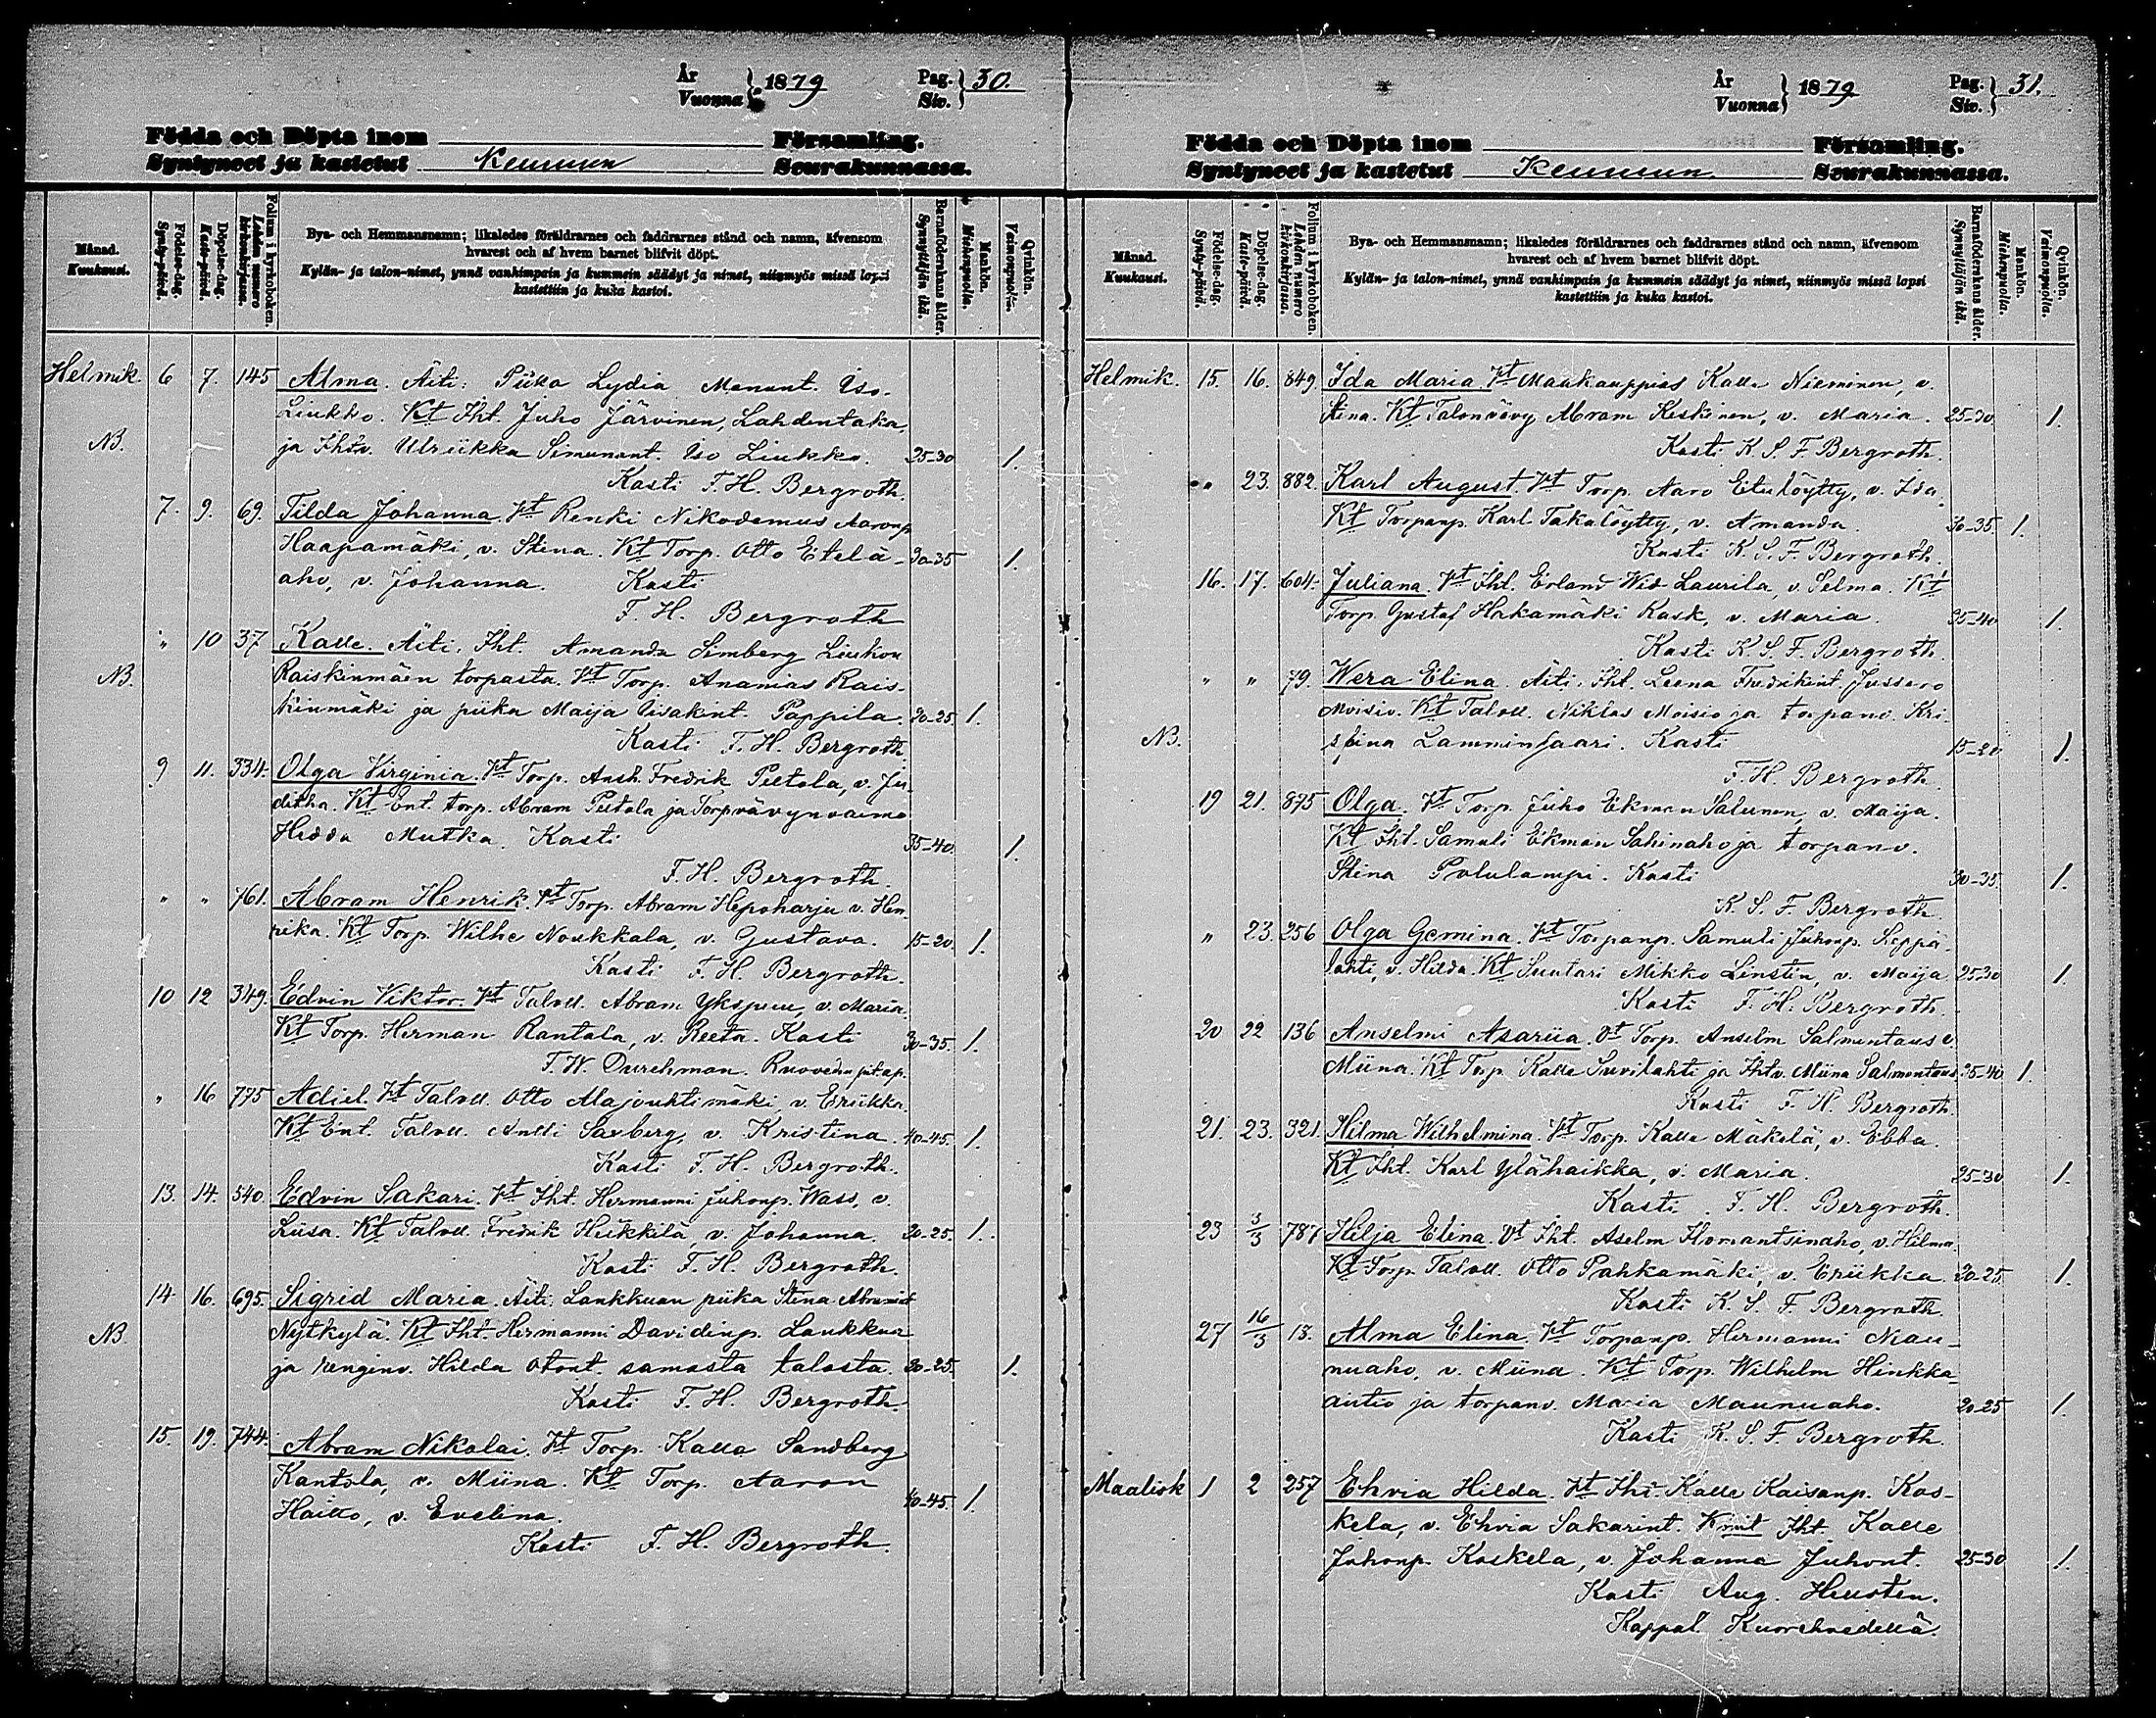 År
Vuonna } 1879
Pag.
Siv. } 30.
Födda och Döpta inom Församling.
Syntyneet ja kastetut Keuruun Seurakunnassa.
Månad.
Kuukausi.
Födelse-dag.
Synty-päivä.
Döpelse-dag.
Kaste-päivä.
Folium i kyrkoboken.
Lehden numero kirkonkirjassa.
Bya- och Hemmansnamn; likaledes föräldrarnes och faddrarnes stånd och namn, äfvensom
hvarest och af hvem barnet blifvit döpt.
Kylän- ja talon-nimet, ynnä vanhimpain ja kummein säädyt ja nimet, niinmyös missä lapsi
kastettiin ja kuka kastoi.
Barnaföderskans ålder.
Synnyttäjän ikä.
Mankön.
Miehenpuolia.
Qvinkön.
Vaimonpuolia.
Helmik. 6 7. 145 Alma. Äiti: Piika Lydia Manunt. Iso-
Liukko. Kt Iht. Juho Järvinen, Lahdentaka,
NB. ja Ihtv. Ulriikka Simunant. Iso Liukko. 25-30 1.
Kasti F. H. Bergroth.
7. 9. 69. Tilda Johanna. Vt Renki Nikodemus Aaronp.
Haapamäki, v. Stina. Kt Torp. Otto Etelä- 30-35 1.
aho, v. Johanna. Kasti
F. H. Bergroth
" 10 37 Kalle. Äiti, Iht. Amanda Simberg Liukon
NB. Raiskinmäen torpasta. Kt Torp. Ananias Rais-
kinmäki ja piika Maija Iisakint. Pappila. 20-25. 1.
Kasti F. H. Bergroth.
9 11. 334. Olga Virginia. Vt Torp. Ansh. Fredrik Peetola, v. Ju-
ditha. Kt Ent. torp. Abram Peetola ja Torpvävynvaimo
Hedda Mutka. Kasti 35-40. 1.
F. H. Bergroth.
" " 761. Abram Henrik. Vt Torp. Abram Hepoharju v. Hen-
rika. Kt Torp. Wilhe Noukkala, v. Gustava. 15-20. 1.
Kasti F. H. Bergroth.
10 12 349. Edvin Viktor. Vt Taloll. Abram Ykspuu, v. Maria.
Kt Torp. Herman Rantala, v. Reeta. Kasti 30-35. 1.
F. W. Durchman. Ruoveden pit.ap.
" 16 775 Adiel. Vt Taloll. Otto Majouhtimäki, v. Eriikka.
Kt Ent. Taloll. Antti Saxberg, v. Kristina. 40-45. 1.
Kasti F. H. Bergroth.
13. 14. 540. Edvin Sakari. Vt Iht. Hermanni Juhonp. Wass, v.
Liisa. Kt Taloll. Fredrik Heikkilä, v. Johanna. 20-25. 1.
Kasti F. H. Bergroth.
14 16. 695. Sigrid Maria. Äiti. Lankkuan piika Stina Abramint
NB. Nytkylä. Kt Iht. Hermanni Davidinp. Laukkua
ja renginv. Hilda Otont. samasta talosta. 20-25. 1.
Kasti F. H. Bergroth.
15. 19. 744. Abram Nikolai. Vt Torp. Kalle Sandberg
Kantola, v. Miina. Kt Torp. Aaron
40-45. 1.
Haitto, v. Evelina.
Kasti F. H. Bergroth.
År
Vuonna } 1879
Pag.
Siv. } 31.
Födda och Döpta inom Församling.
Syntyneet ja kastetut Keuruun Seurakunnassa.
Månad.
Kuukausi.
Födelse-dag.
Synty-päivä.
Döpelse-dag.
Kaste-päivä.
Folium i kyrkoboken.
Lehden numero kirkonkirjassa.
Bya- och Hemmansnamn; likaledes föräldrarnes och faddrarnes stånd och namn, äfvensom
hvarest och af hvem barnet blifvit döpt.
Kylän- ja talon-nimet, ynnä vanhimpain ja kummein säädyt ja nimet, niinmyös missä lapsi
kastettiin ja kuka kastoi.
Barnaföderskans ålder.
Synnyttäjän ikä.
Mankön.
Miehenpuolia.
Qvinkön.
Vaimonpuolia.
Helmik. 15. 16. 849. Ida Maria. Vt Maakauppias Kalle Nieminen, v.
Stina. Kt Talonvävy Abram Keskinen, v. Maria. 25-30 1.
Kasti K. S. F. Bergroth.
" 23. 882. Karl August. Vt Torp. Aaro Etulöytty, v. Ida.
Kt Torpanp. Karl Takalöytty, v. Amanda. 30-35. 1.
Kasti K. S. F. Bergroth.
16. 17. 604. Juliana. Vt Iht. Erland Wid. Laurila, v. Selma. Kt
Torp. Gustaf Hakamäki Kask, v. Maria. 35-40 1.
Kasti K. S. F. Bergroth.
" " 79. Wera Elina. Äiti. Iht. Leena Fredrikint Jussero
Moisio. Kt Taloll. Niklas Moisio ja torpanv. Kri-
NB. stina Lamminsaari. Kasti 15-20 1.
F. H. Bergroth.
19 21. 875 Olga. Vt Torp. Juho Ekman Salunen, v. Maija.
Kt Iht. Samuli Ekman Sahinaho ja torpanv.
Stina Polulampi. Kasti 30-35. 1.
K. S. F. Bergroth.
" 23. 256 Olga Gemina. Vt Torpanp. Samuli Juhonp. Leppä-
lahti, v. Hilda. Kt Suutari Mikko Linstin, v. Maija 25-30 1.
Kasti F. H. Bergroth.
20 22 136 Anselmi Asariia. Vt Torp. Anselm Salmentaus v.
Miina. Kt Torp. Kalle Suvilahti ja Ihtv. Miina Salmentaus. 35-40 1.
Kasti F. H. Bergroth.
21. 23. 321. Hilma Wilhelmina. Vt Torp. Kalle Mäkelä, v. Ebba.
Kt Iht. Karl Ylähaikka, v. Maria. 25-30 1.
Kasti F. H. Bergroth.
23 3/3 787 Hilja Elina. Vt Iht. Aselm Homantsinaho, v. Hilma.
Kt Torp. Taloll. Otto Pahkamäki, v. Eriikka. 20-25. 1.
Kasti K. S. F. Bergroth.
27 16/3 13. Alma Elina. Vt Torpanp. Hermanni Mau-
nuaho, v. Miina. Kt Torp. Wilhelm Hinkka-
autio ja torpanv. Maria Maunuaho. 20-25 1.
Kasti K. S. F. Bergroth.
Maalisk 1 2 257 Ehvia Hilda. Vt Iht. Kalle Kaisanp. Kos-
kela, v. Ehvia Sakarint. Kmit Iht. Kalle
Juhonp. Koskela, v. Johanna Juhont. 25-30 1.
Kasti Aug. Heusten.
Kappal. Kuorehvedellä.